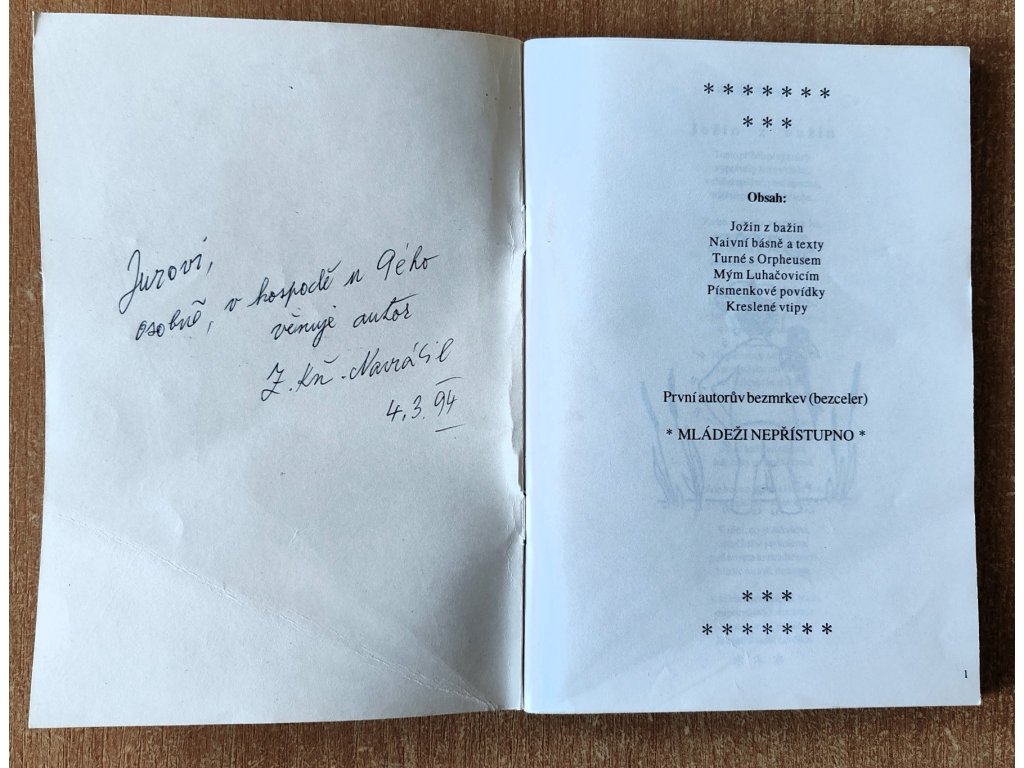 Jurovi,
osobně, v hospodě u 9ého
věnuje autor
Z. Kň. Navrátil
4. 3. 94
* * * * * * *
* * *
Obsah:
Jožin z bažin
Naivní básně a texty
Turné s Orpheusem
Mým Luhačovicím
Písmenkové povídky
Kreslené vtipy
První autorův bezmrkev (bezceler)
* MLÁDEŽI NEPŘÍSTUPNO *
* * *
* * * * * * *
1